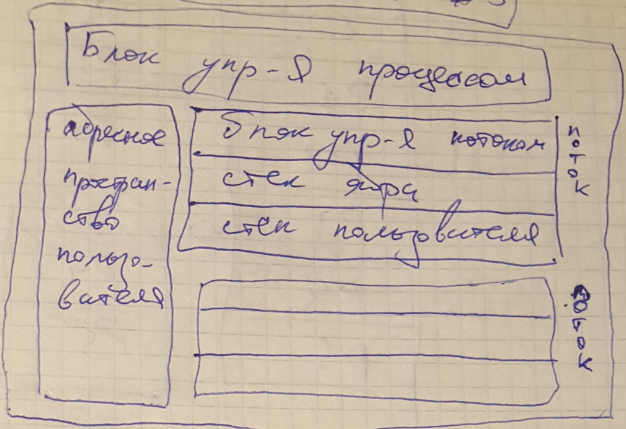 Блок упр-я процессом
адресное
простран-
ство
пользо-
вателя
Блок упр-я потоком
стек ядра
стек пользователя
поток
поток